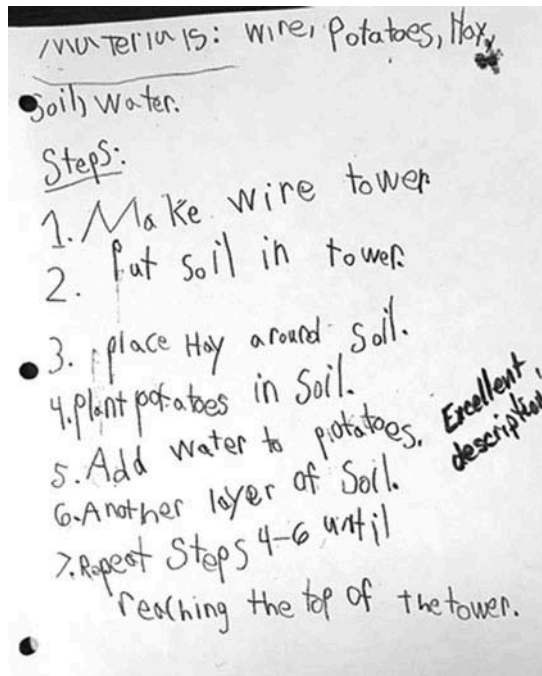 Materials: wire, Potatoes, Hay,
Soil, Water.
Steps:
1. Make wire tower
2. Put soil in tower.
3. place Hay around Soil.
4. plant potatoes in Soil.
5. Add water to potatoes.
6. Another layer of Soil.
7. Repeat Steps 4-6 until
reaching the top of the tower.
Excellent
description